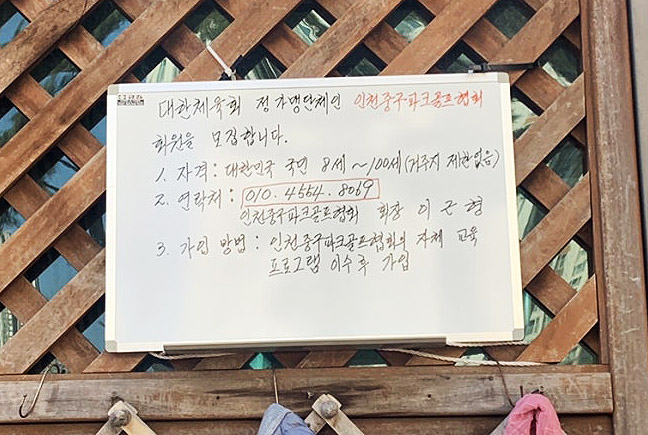 대한체육회 정가맹단체인 인천중구파크골프협회
회원을 모집합니다.
1. 자격 : 대한민국 국민 8세 ~ 100세 (거주지 제한없음)
2. 연락처 : 010.4554.8069
인천중구파크골프협회 회장 이근형
3. 가입 방법 : 인천중구파크골프협회의 자체 교육
프로그램 이수후 가입